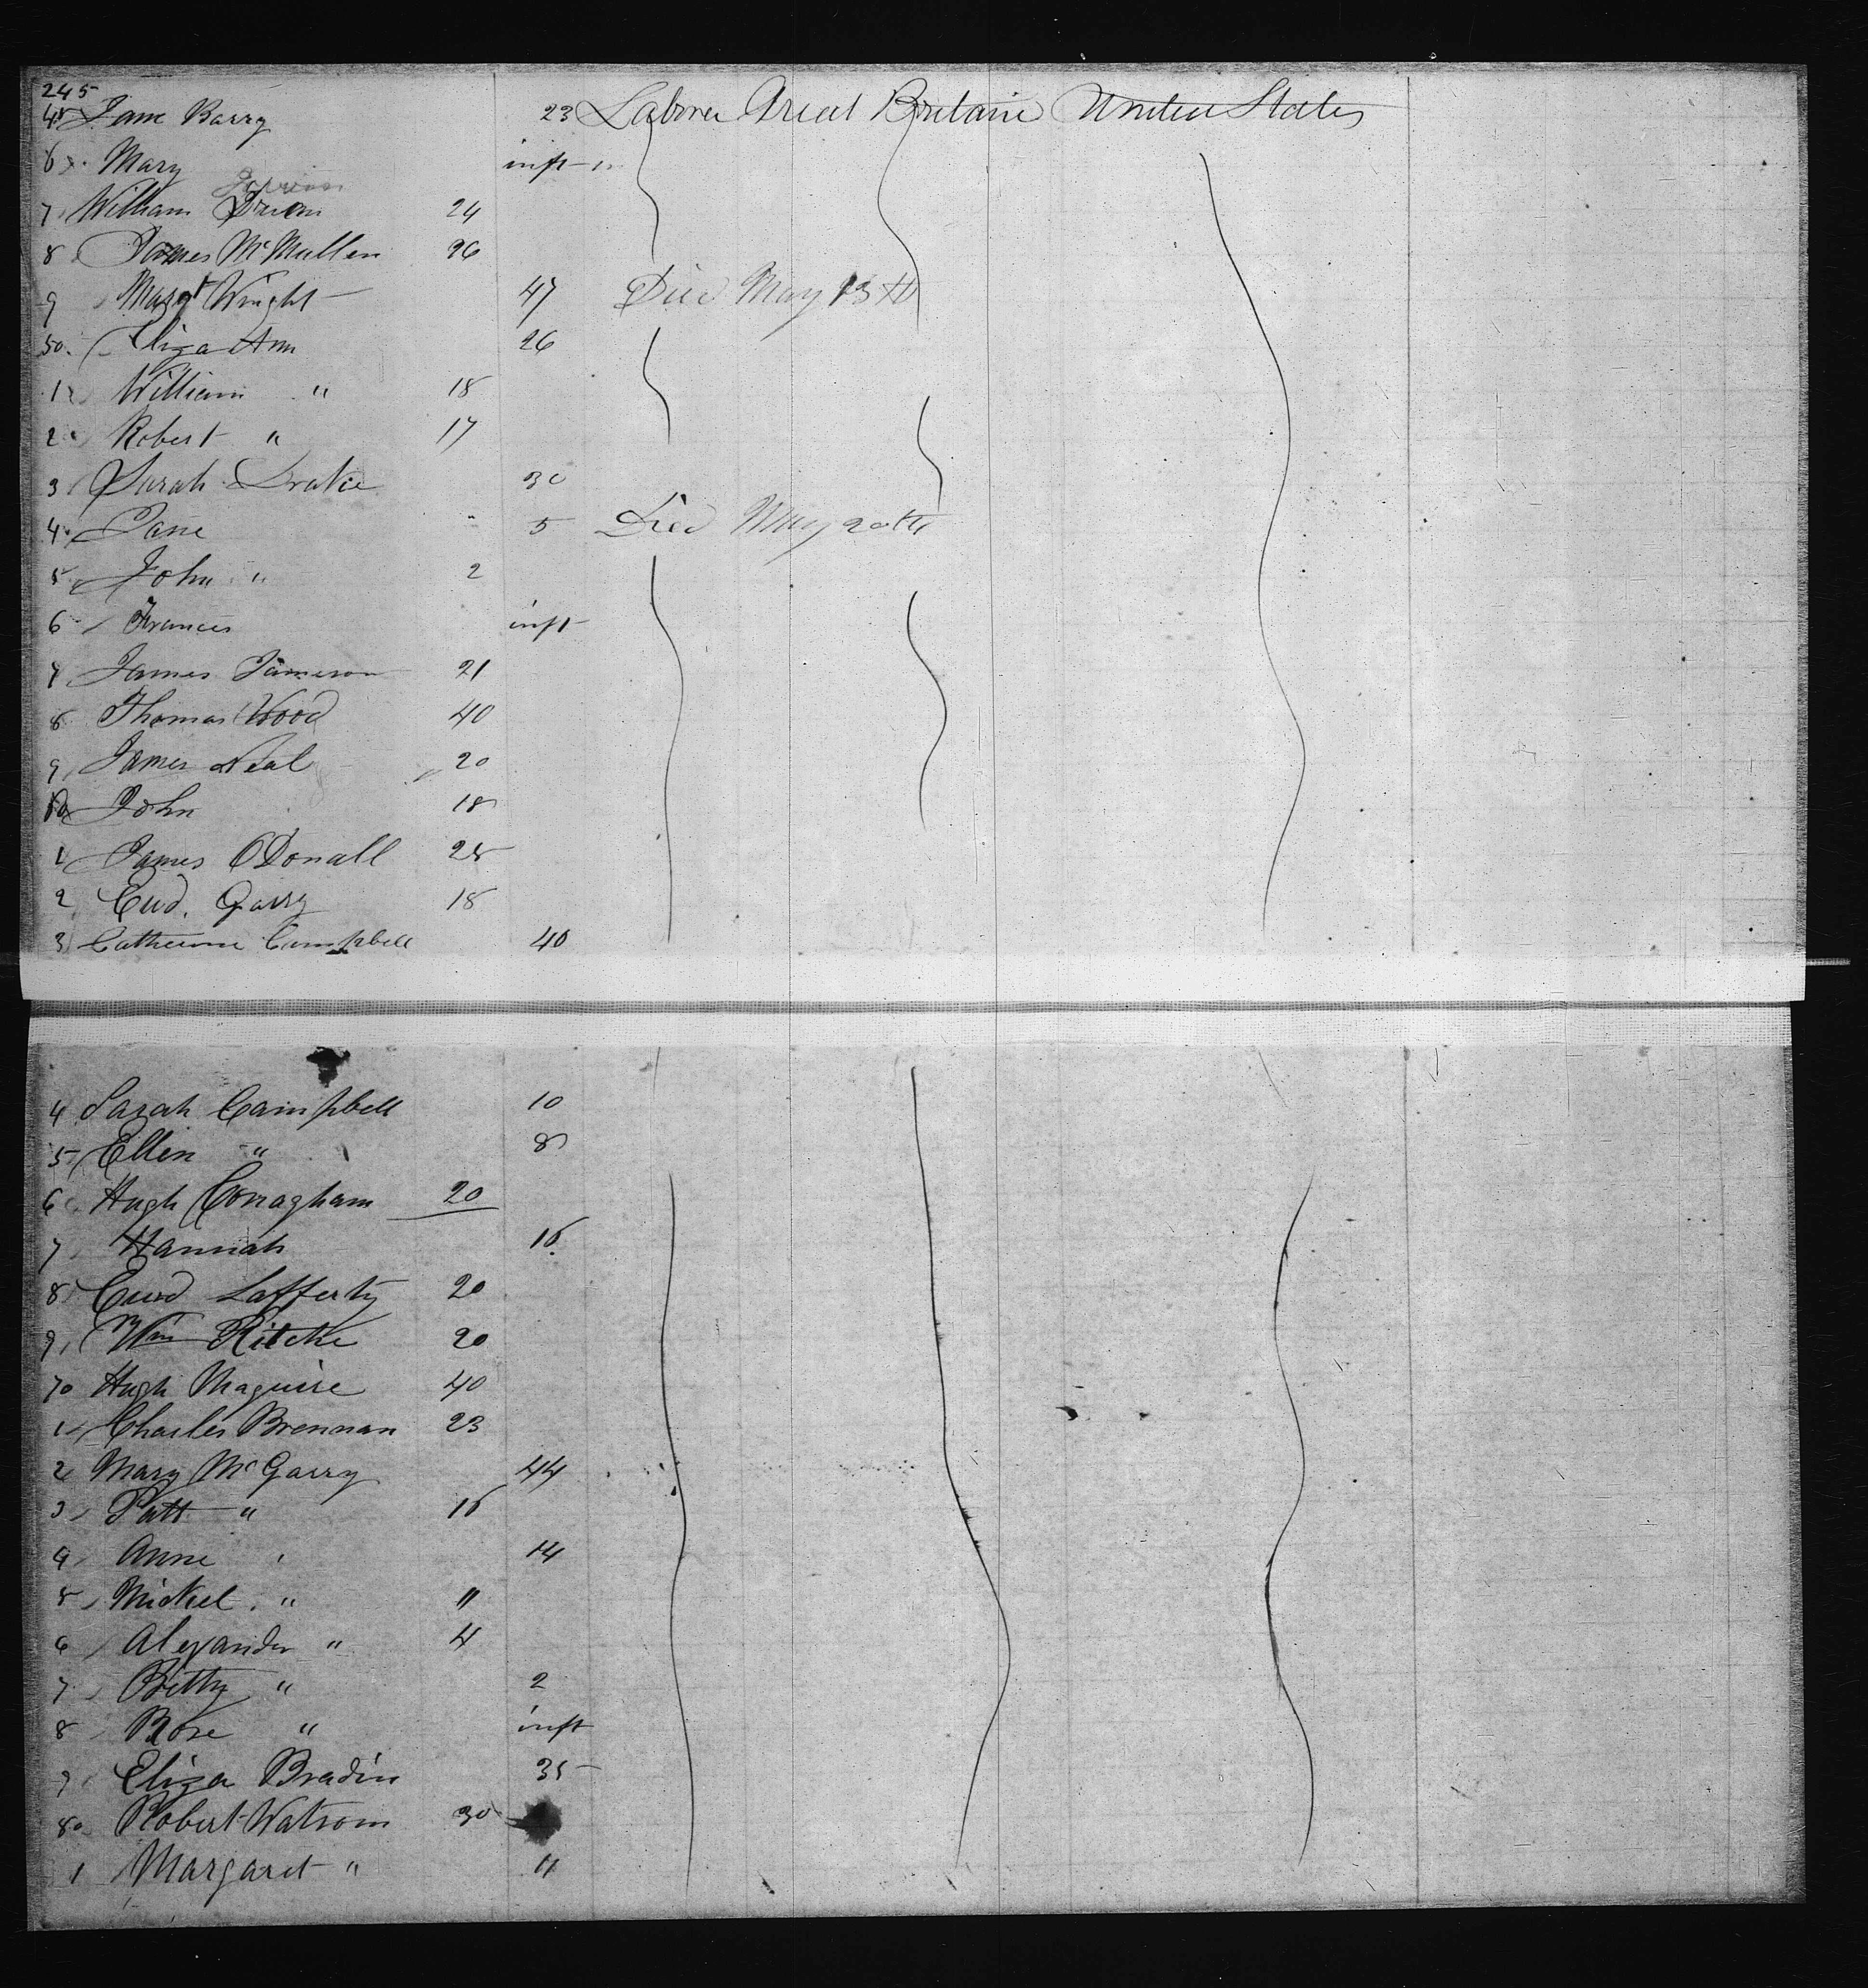 245
45 Jane Barry 23 Laborer Great Britain United States
6 Mary inft "
7 William 24
8 James McMullen 26
9 Margt Wright 47 Died May 13th
50. Eliza Ann 26
1 William " 18
2 Robert " 17
3 Sarah 30
4 Jane 5 Died May 20th
5 John " 2
6 Frances inft
7 James Jameson 21
8 Thomas Wood 40
9 James Neal 20
60 John 18
1 James ODonall 25
2 Garry 18
3 Catherine Campbell 40
4 Sarah Campbell 10
5 Ellen " 8
6 Hugh Conagham 20
7 Hannah 16
8 Lafferty 20
9 Wm Ritchie 20
70 Hugh Maguire 40
1 Charles Brennan 23
2 Mary McGarry 44
3 Patt " 16
4 Anne " 14
5 Mickel " 11
6 Alexander " 4
7 Bitty " 2
8 Rose " inft
9 Eliza Bradin 35
80 Robert Watson 30
1 Margaret " 11